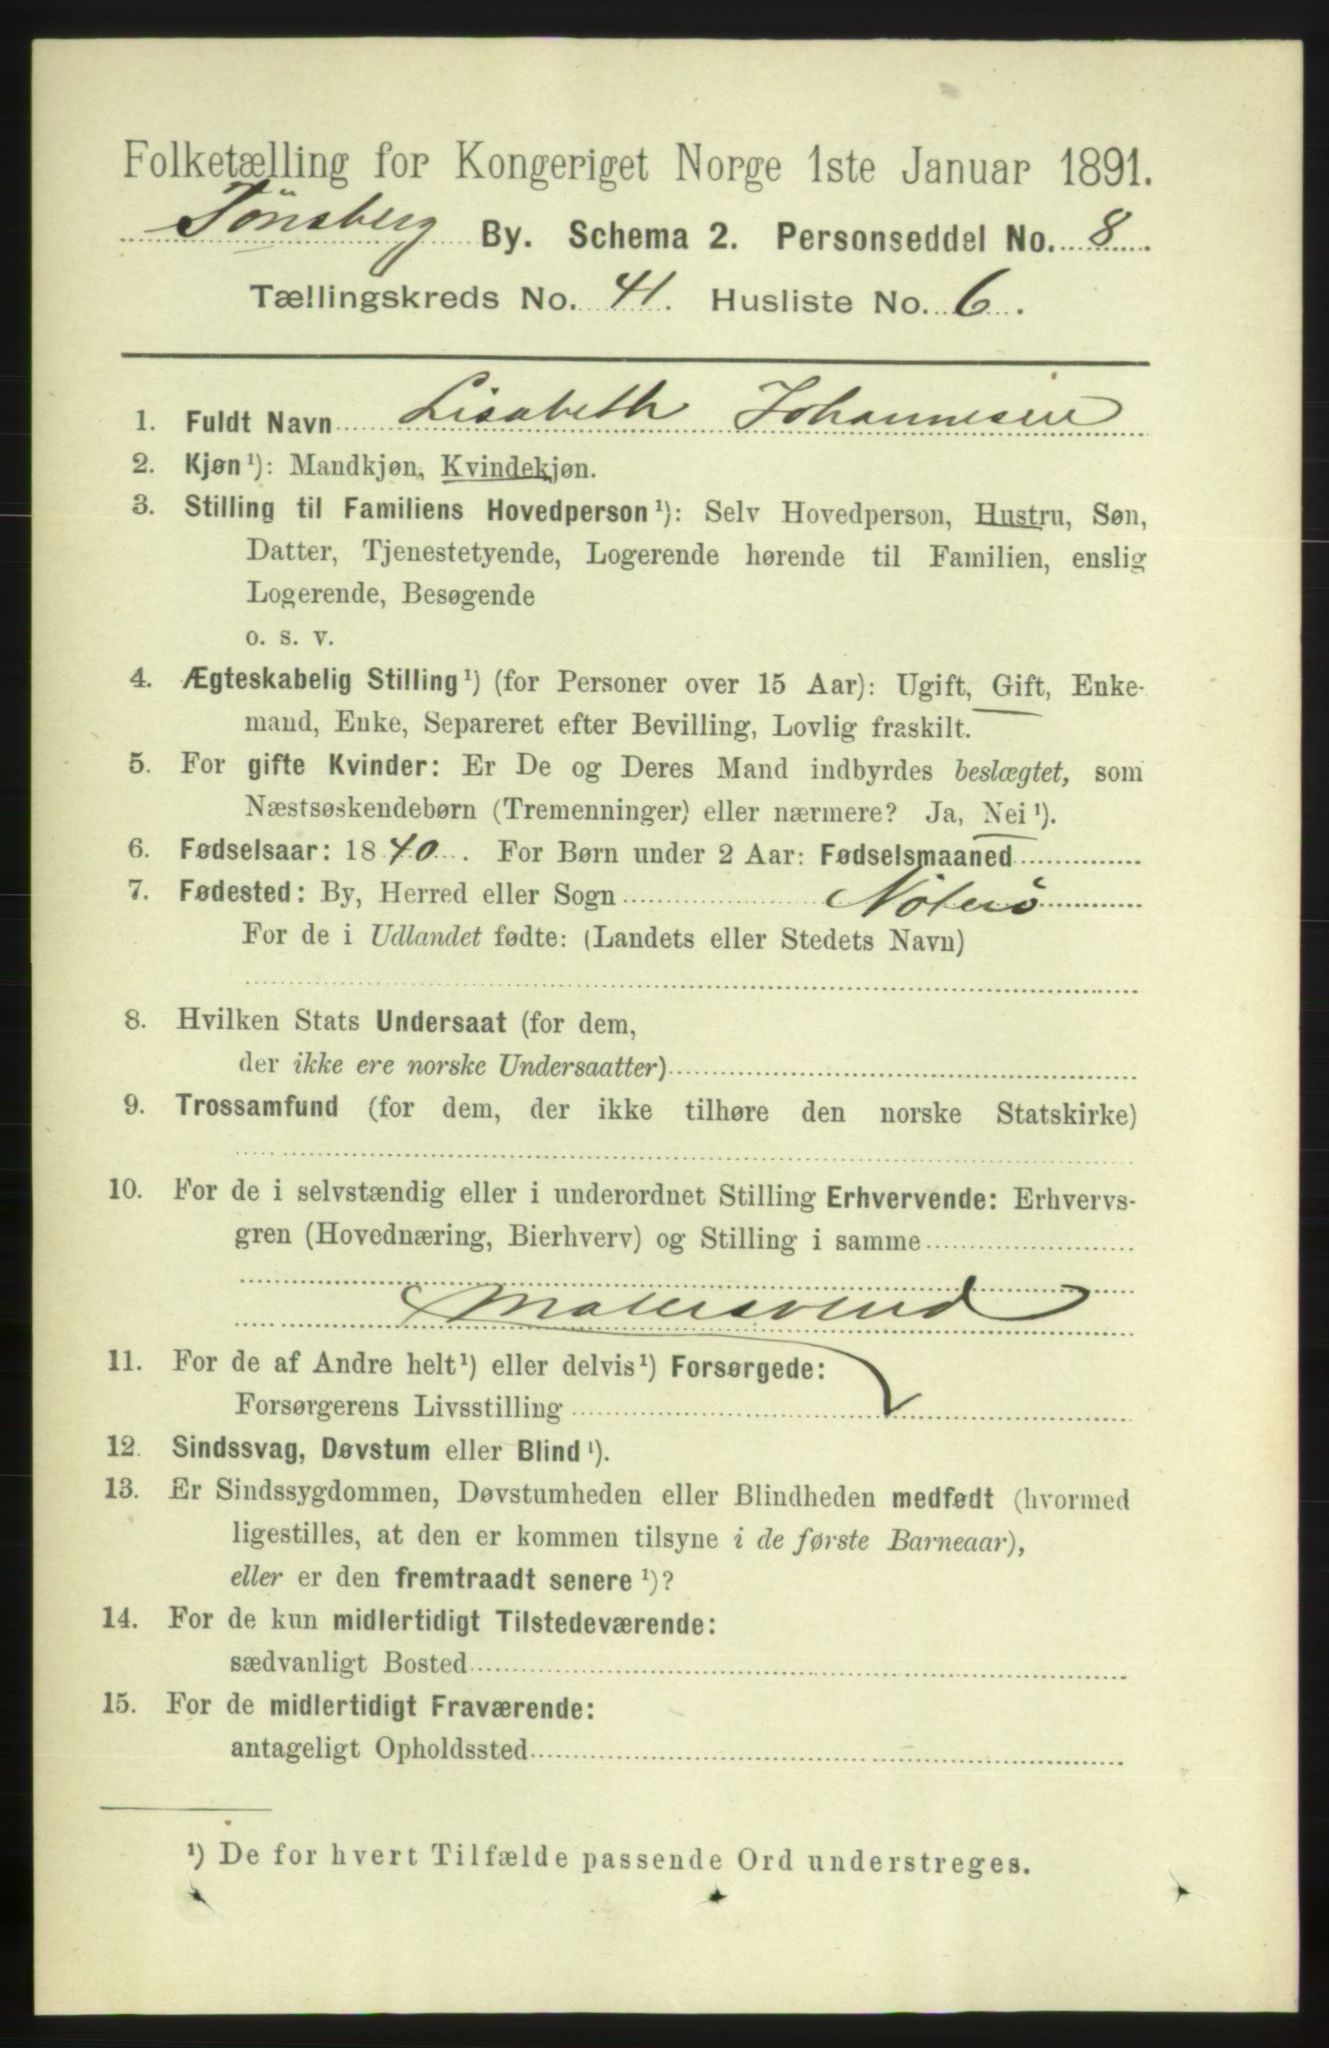 Folketælling for Kongeriget Norge 1ste Januar 1891.
Tönsberg By. Schema 2. Personseddel No. 8.
Tællingskreds No. 41. Husliste No. 6.
1. Fuldt Navn Lisabeth Johannesen
2. Kjøn ¹): Mandkjøn, Kvindekjøn.
3. Stilling til Familiens Hovedperson ¹): Selv Hovedperson, Hustru, Søn,
Datter, Tjenestetyende, Logerende hørende til Familien, enslig
Logerende, Besøgende
o. s. v.
4. Ægteskabelig Stilling ¹) (for Personer over 15 Aar): Ugift, Gift, Enke-
mand, Enke, Separeret efter Bevilling, Lovlig fraskilt.
5. For gifte Kvinder: Er De og Deres Mand indbyrdes beslægtet, som
Næstsøskendebørn (Tremenninger) eller nærmere? Ja, Nei ¹).
6. Fødselsaar: 1840. For Børn under 2 Aar: Fødselsmaaned
7. Fødested: By, Herred eller Sogn Nöterö
For de i Udlandet fødte: (Landets eller Stedets Navn)
8. Hvilken Stats Undersaat (for dem,
der ikke ere norske Undersaatter)
9. Trossamfund (for dem, der ikke tilhøre den norske Statskirke)
10. For de i selvstændig eller i underordnet Stilling Erhvervende: Erhvervs-
gren (Hovednæring, Bierhverv) og Stilling i samme
Malersvend
11. For de af Andre helt ¹) eller delvis ¹) Forsørgede:
Forsørgerens Livsstilling
12. Sindssvag, Døvstum eller Blind ¹).
13. Er Sindssygdommen, Døvstumheden eller Blindheden medfødt (hvormed
ligestilles, at den er kommen tilsyne i de første Barneaar),
eller er den fremtraadt senere ¹)?
14. For de kun midlertidigt Tilstedeværende:
sædvanligt Bosted
15. For de midlertidigt Fraværende:
antageligt Opholdssted
¹) De for hvert Tilfælde passende Ord understreges.